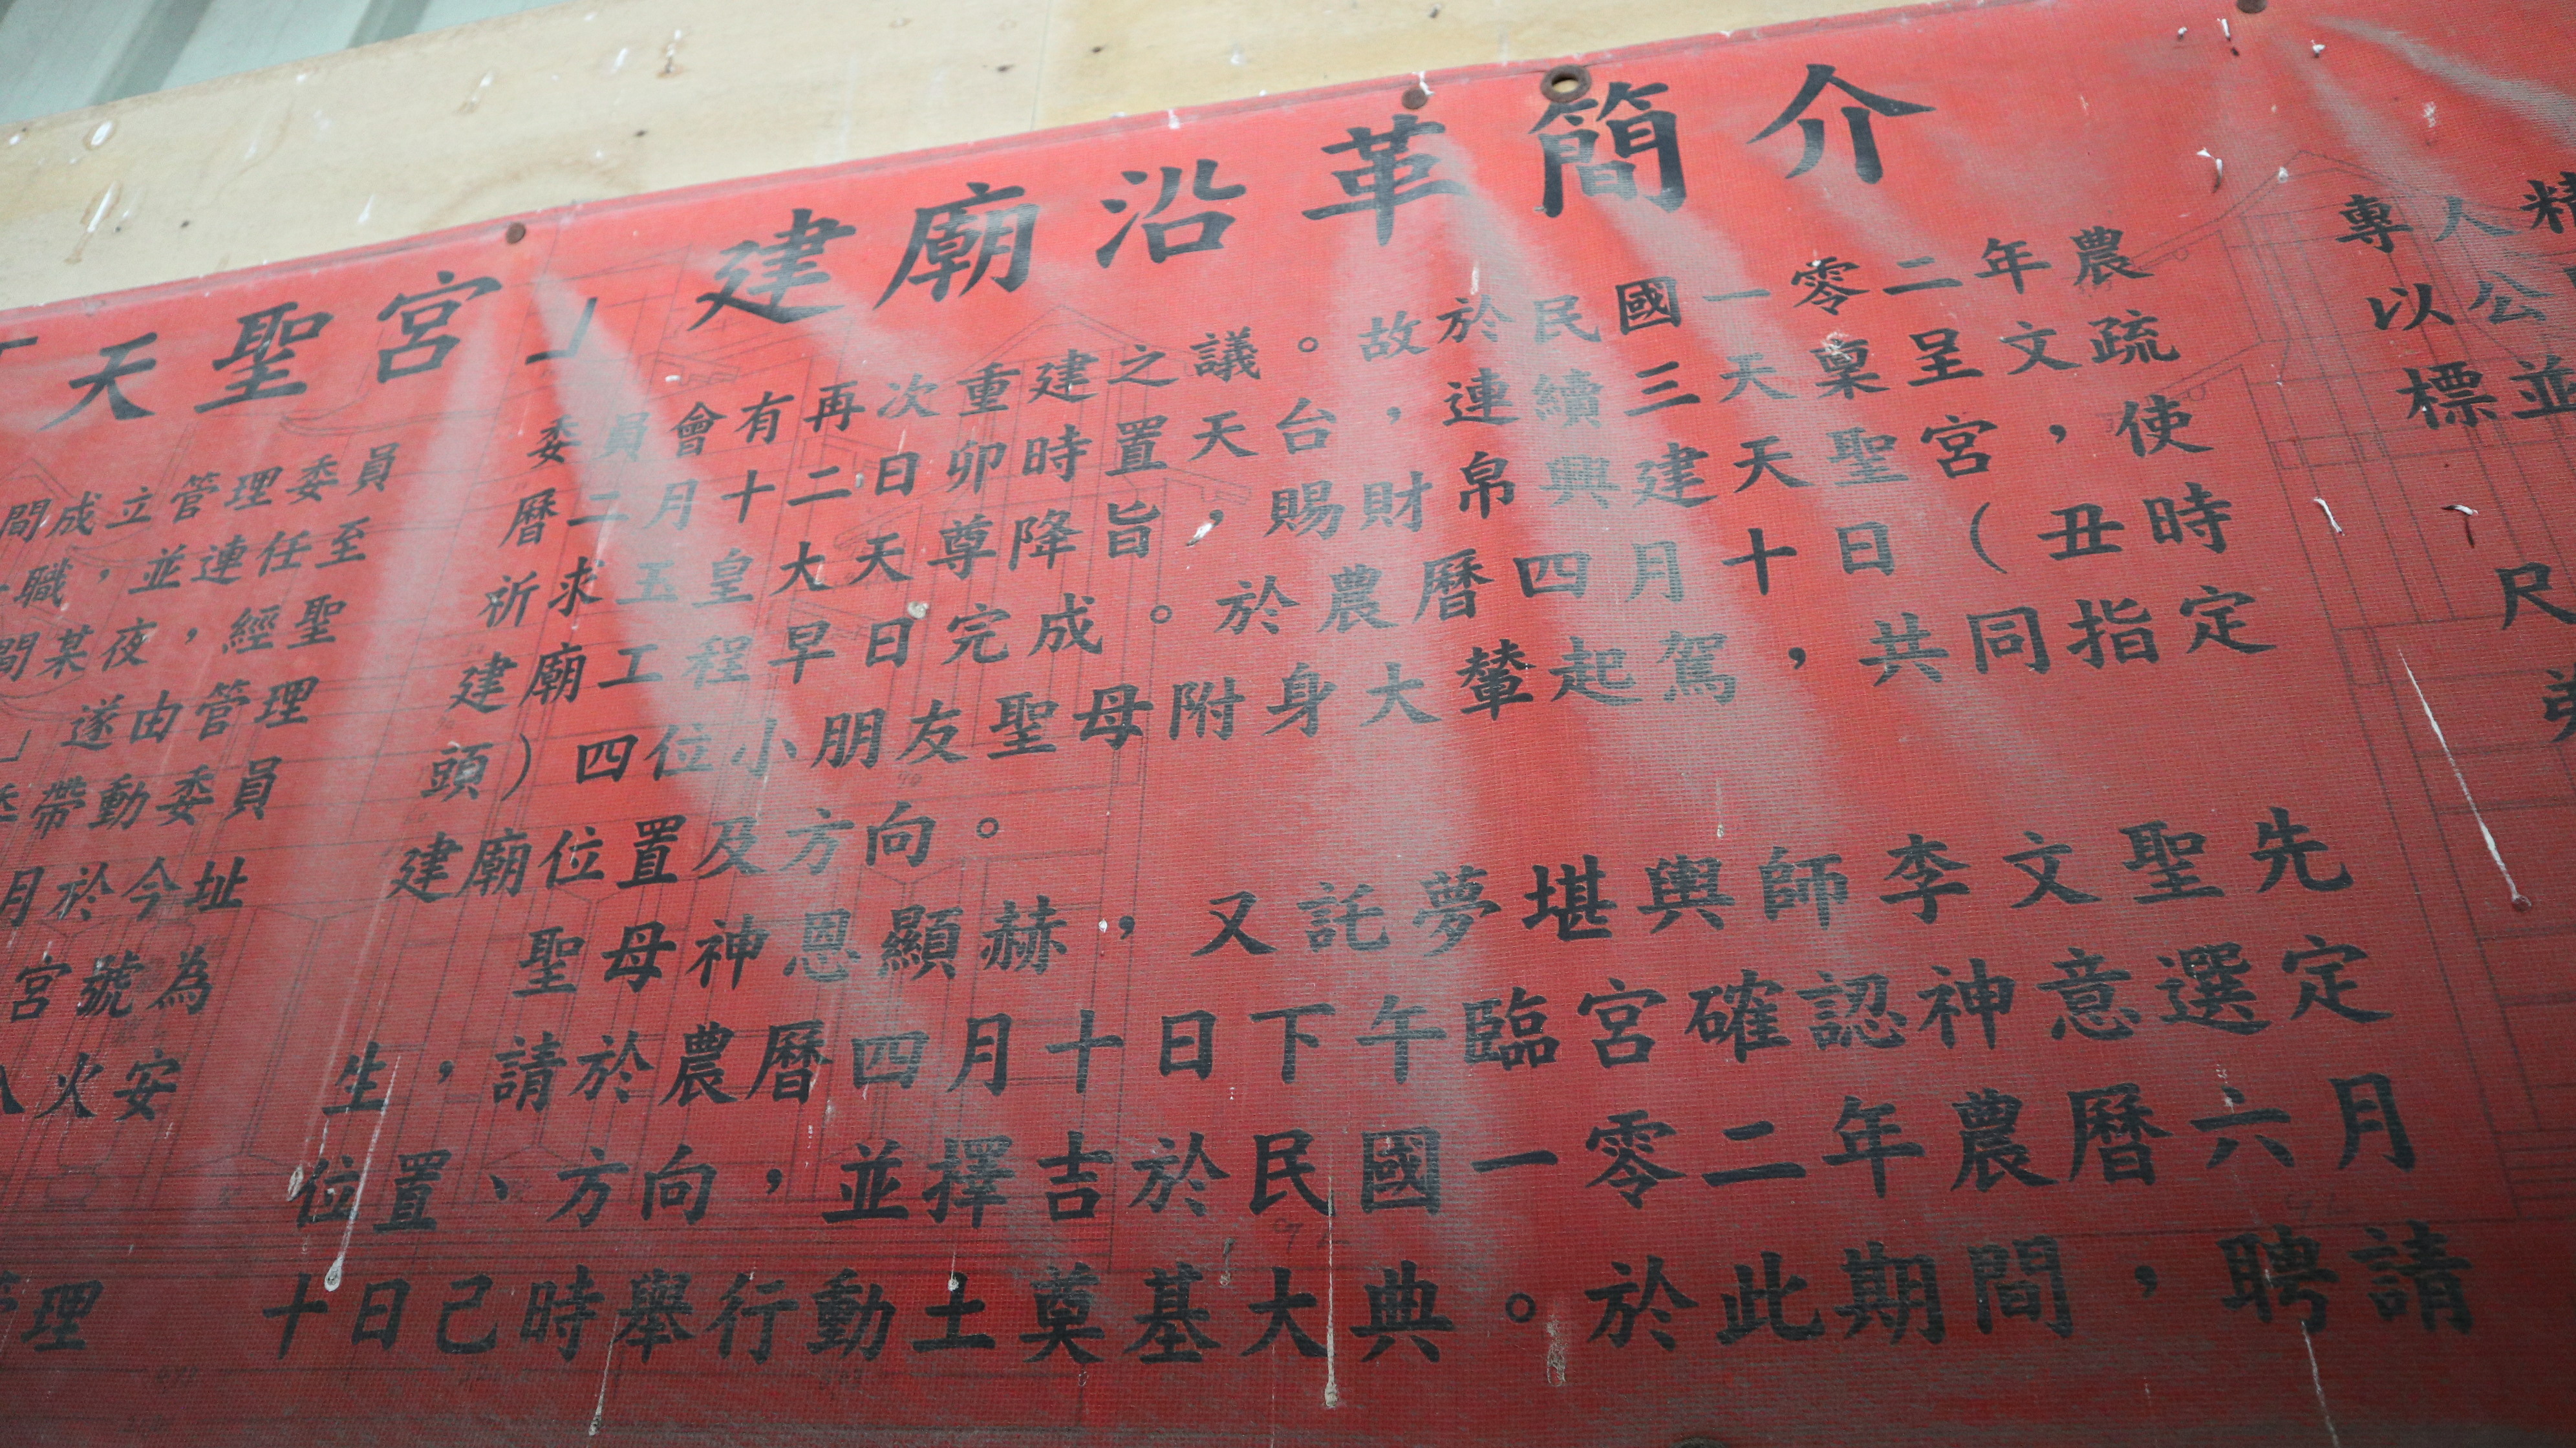 「天聖宮」建廟沿革簡介
間成立管理委員
職，並連任至
間某夜，經聖
」遂由管理
帶動委員
月於今址
宮號為
入火安
理
委員會有再次重建之議。故於民國一零二年農
曆二月十二日卯時置天台，連續三天稟呈文疏
祈求玉皇大天尊降旨，賜財帛興建天聖宮，使
建廟工程早日完成。於農曆四月十日（丑時
頭）四位小朋友聖母附身大輦起駕，共同指定
建廟位置及方向。
聖母神恩顯赫，又託夢堪輿師李文聖先
生，請於農曆四月十日下午臨宮確認神意選定
位置、方向，並擇吉於民國一零二年農曆六月
十日己時舉行動土奠基大典。於此期間，聘請
專人精
以公
標並
尺